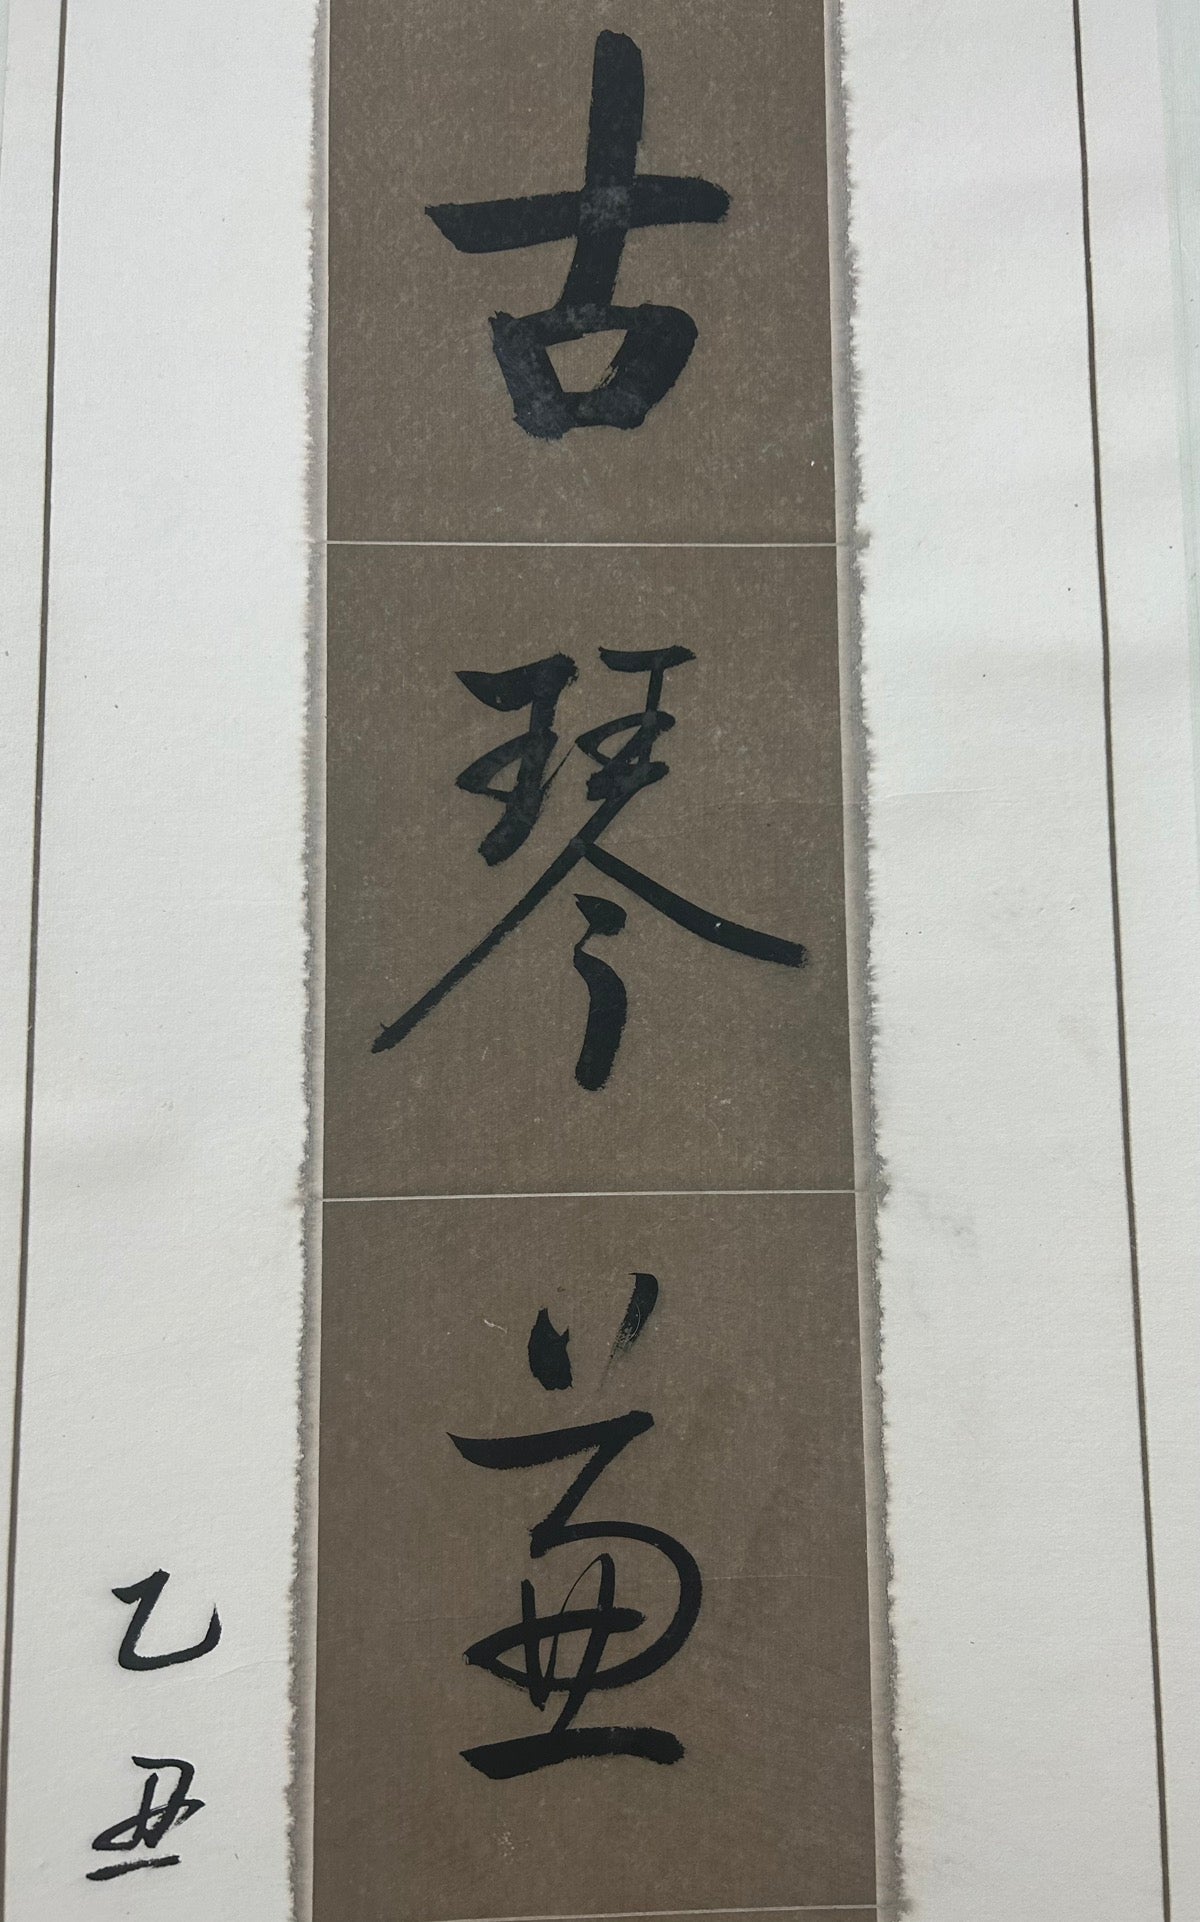 古琴兼
乙丑